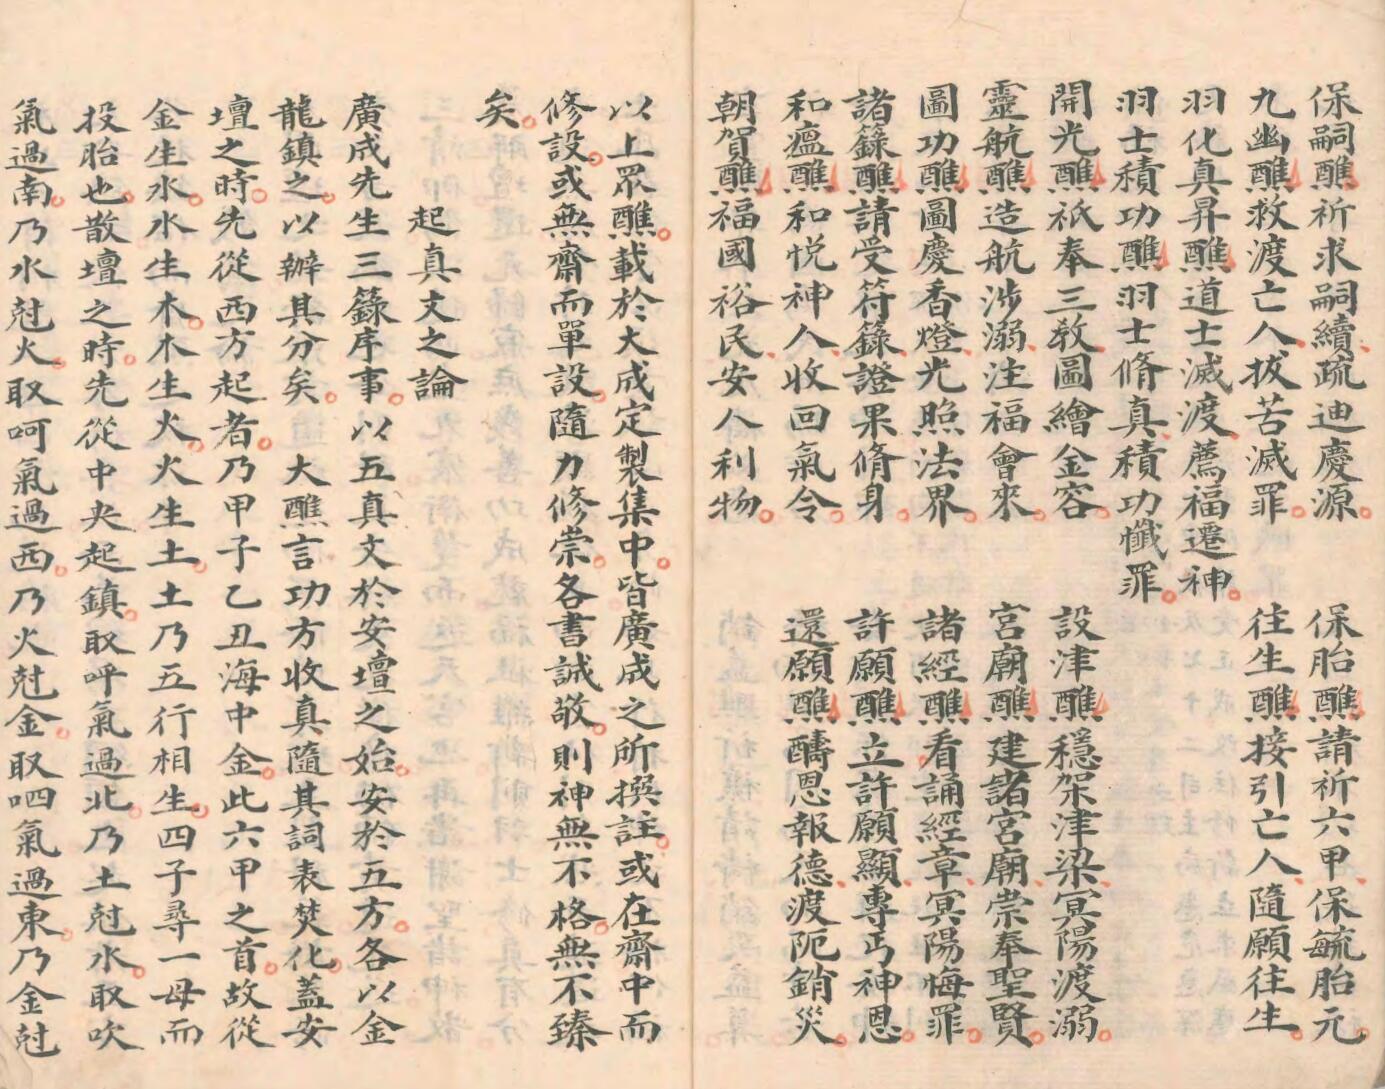 保嗣醮祈求嗣續、疏迪慶源。　保胎醮請祈六甲、保毓胎元。
九幽醮救渡亡人、拔苦滅罪。　往生醮接引亡人、隨願往生。
羽化真昇醮道士滅渡、薦福遷神。
羽士積功醮羽士脩真、積功懺罪。
開光醮祇奉三教、圖繪金容。　設津醮穩架津梁、冥陽渡溺。
靈航醮造航涉溺、注福會來。　宮廟醮建諸宮廟、崇奉聖賢。
圖功醮圖慶香燈、光照法界。　諸經醮看誦經章、冥陽悔罪。
諸籙醮請受符籙、證果脩身。　許願醮立許願顯、專丐神恩。
和瘟醮和悅神人、收回氣令。　還願醮酧恩報德、渡阨銷災。
朝賀醮福國裕民、安人利物。
以上眾醮。載於大成定製集中。皆廣成之所撰註。或在齋中而
修設。或無齋而單設。隨力修崇。各書誠敬。則神無不格。無不臻
矣。
起真文之論
廣成先生三籙序事。以五真文於安壇之始。安於五方。各以金
龍鎮之。以辦其分矣。大醮言功方收真隨其詞表焚化。蓋安
壇之時。先從西方起者。乃甲子乙丑海中金。此六甲之首。故從
金生水。水生木。木生火。火生土。土乃五行相生。四子尋一母而
投胎也。散壇之時。先從中央起鎮。取呼氣過北。乃土尅水。取吹
氣過南。乃水尅火。取呵氣過西。乃火尅金。取呬氣過東。乃金尅